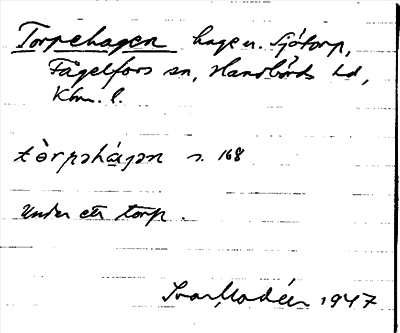 Torpehagen hage u. Sjötorp,
Fågelfors sn, Handbörds hd,
Kbm. l.
tòrpəhágən s. 168
Under ett torp.
Ivar Modéer 1947